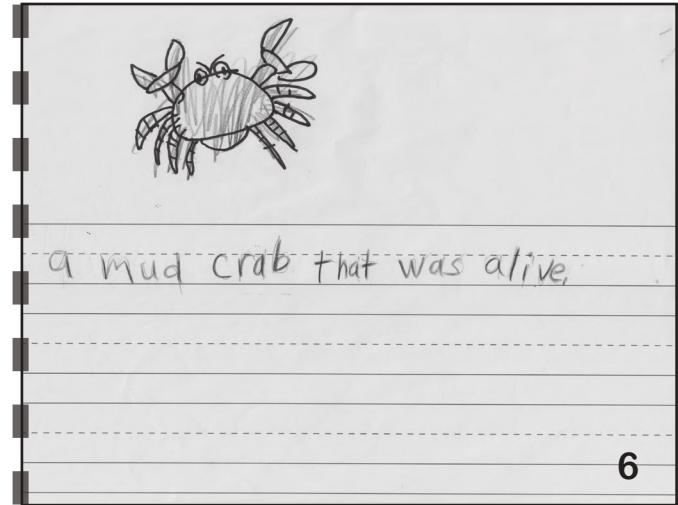 a mud crab that was alive.
6